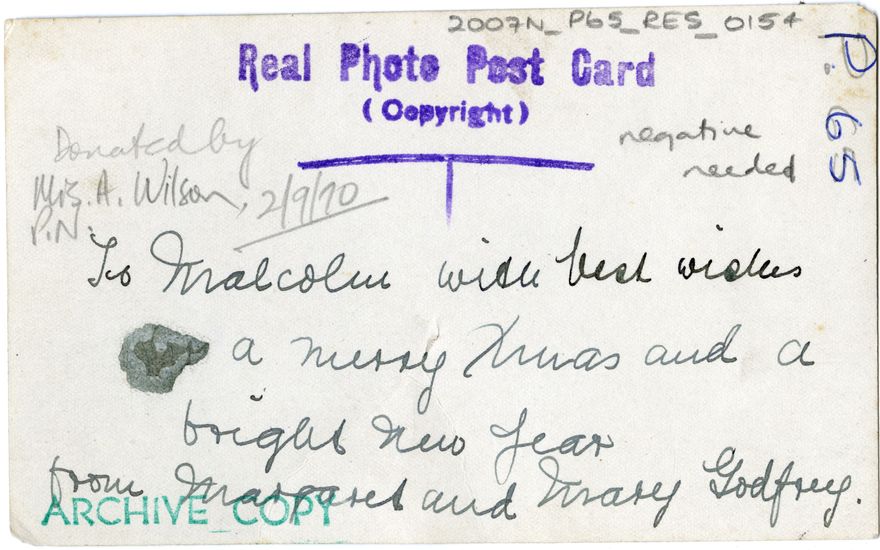 2007N_P65_RES_0154
P. 65
Real Photo Post Card
(Copyright)
negative
needed
Donated by
Mrs. A. Wilson, 2/9/70
P.N.
To Malcolm with best wishes
a merry Xmas and a
bright New Year
from Margaret and Mary Godfrey.
ARCHIVE COPY